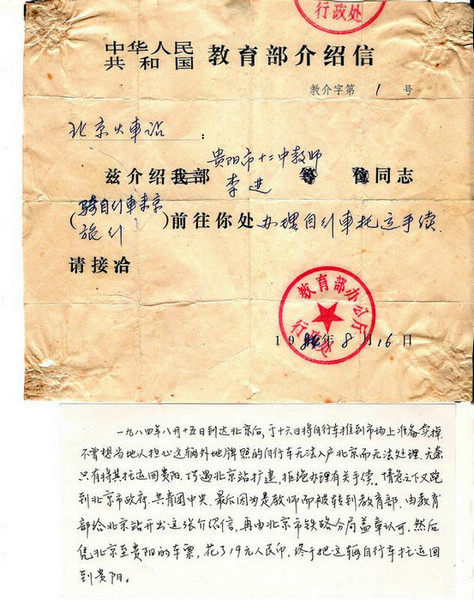 行政处
中华人民
共和国 教育部介绍信
教介字第 1 号
北京火車站 :
贵阳市十二中教师
兹介绍我部 李进 等 同志
骑自行車来京
(旅行)前往你处办理自行車托运手续
请接洽
教育部办公厅
行政处
1984年8月16日
一九八四年八月十五日到达北京后,于十六日将自行车推到市场上准备卖掉,
不曾想当地人担心这辆外地牌照的自行车无法入户北京而无法处理,无奈
只有将其托运回贵阳。巧遇北京站扩建,拒绝办理有关手续。情急之下又跑
到北京市政府、共青团中央,最后因为是教师而被转到教育部,由教育
部给北京站开出这张介绍信,再由北京市铁路分局盖章认可,然后
凭北京至贵阳的车票,花了19元人民币,终于把这辆自行车托运回
到贵阳。